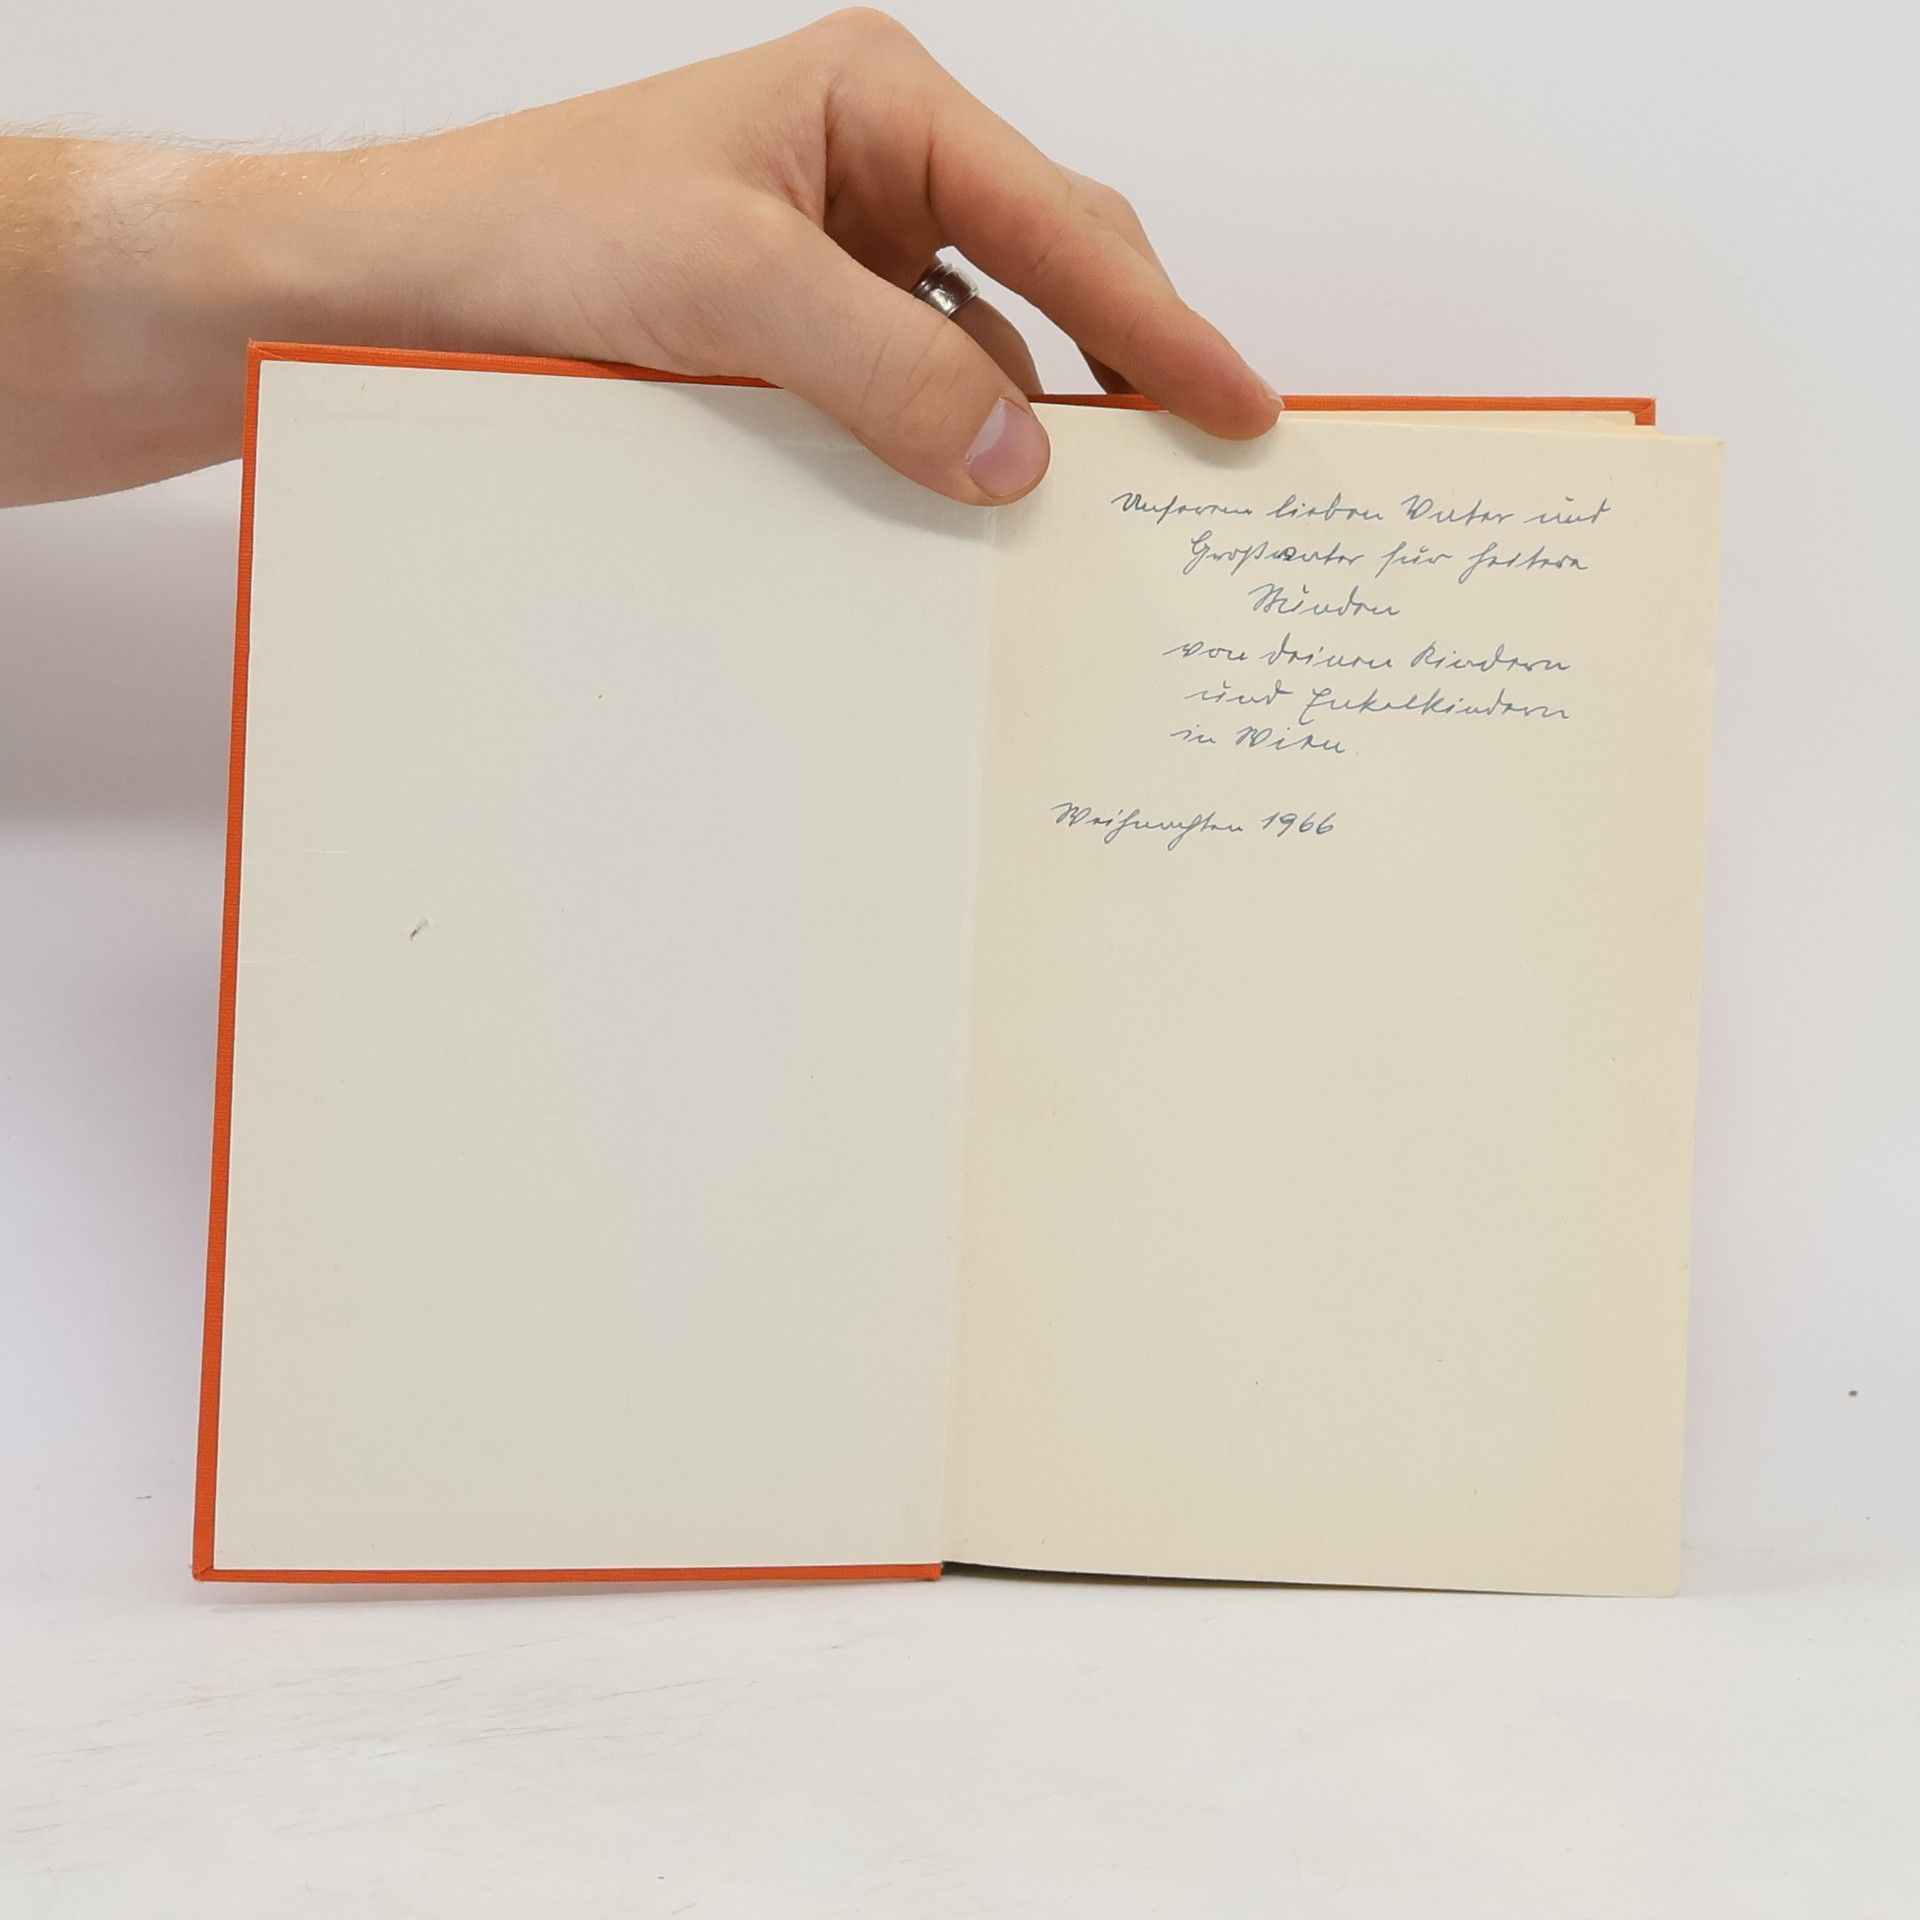 Unserem lieben Vater und
Großvater für heitere
Stunden
von deinen Kindern
und Enkelkindern
in Wien.
Weihnachten 1966